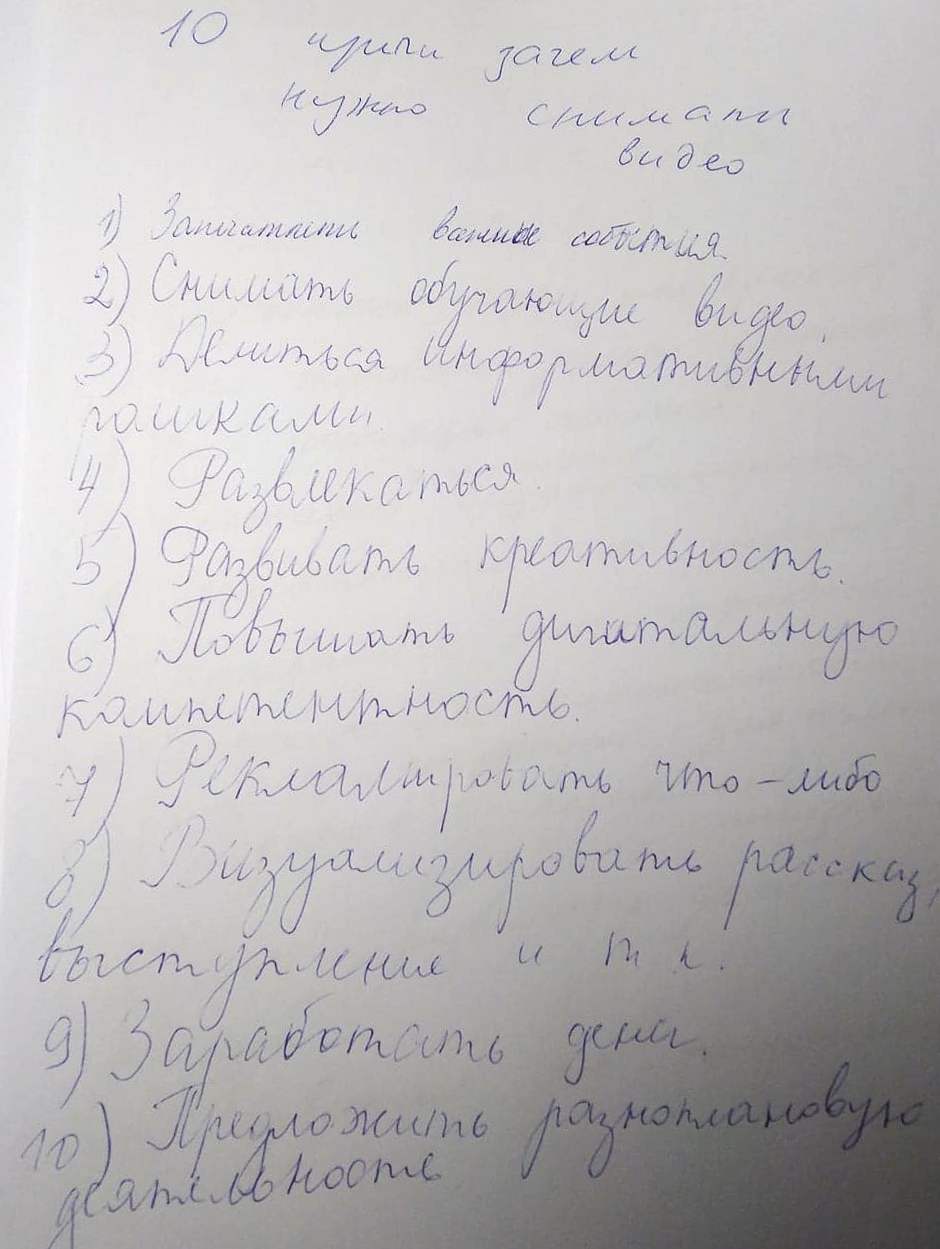 10 зачем
нужно снимать
видео
1) Запечатлеть важные события.
2) Снимать обучающие видео.
3) Делиться информативными
4) Развлекаться.
5) Развивать креативность.
6) Повышать дигитальную
компетентность.
7) Рекламировать что-либо
8) Визуализировать рассказ,
выступление и т
9) Заработать
10) Предложить разноплановую
деятельность